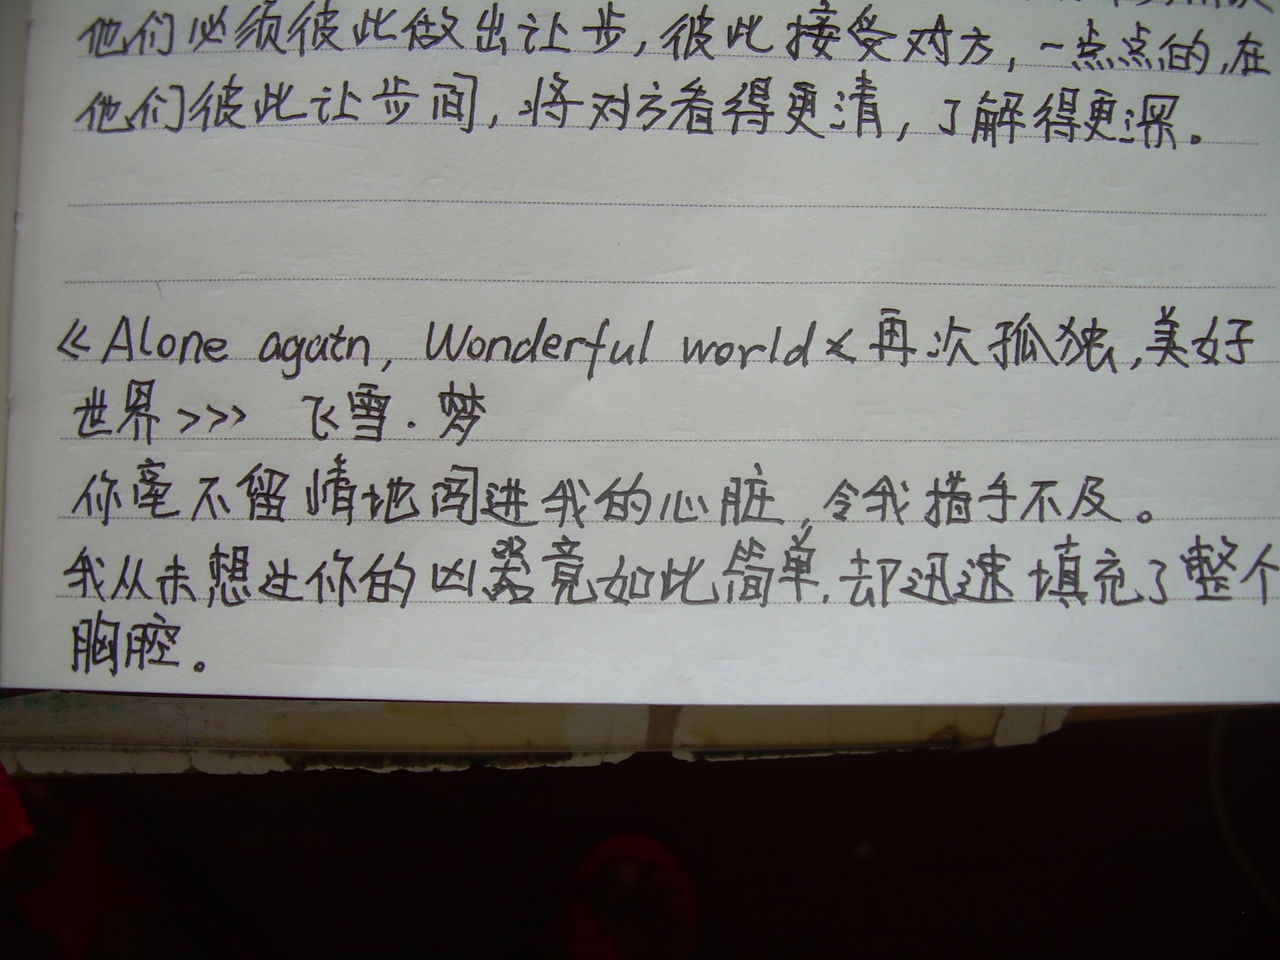 他们必须彼此做出让步,彼此接受对方,一点点的,在
他们彼此让步间,将对方看得更清,了解得更深。
《Alone again, Wonderful world<再次孤独,美好
世界>>> 飞雪·梦
你毫不留情地闯进我的心脏,令我措手不及。
我从未想过你的凶器竟如此简单,却迅速填充了整个
胸腔。